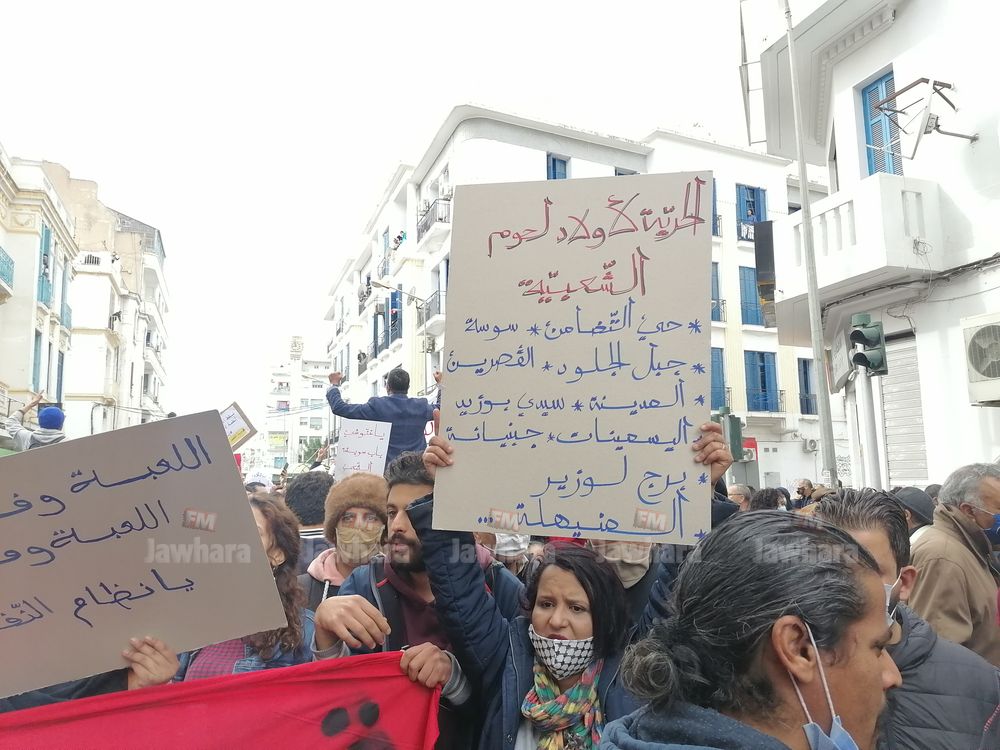 الحريّة لأولاد لحوم
الشّعبيّة
* حيّ التّضامن * سوسة
* جبل الجلود * القصرين
* المدينة * سيدي بوزيد
* اليسمينات * جبنيانة
* برج لوزير
* المنيهلة ...
اللعبة وف
اللعبة وف
يا نظام
باب سويقة
FM
Jawhara
FM
Jawhara
FM
Jawhara
FM
Jawhara